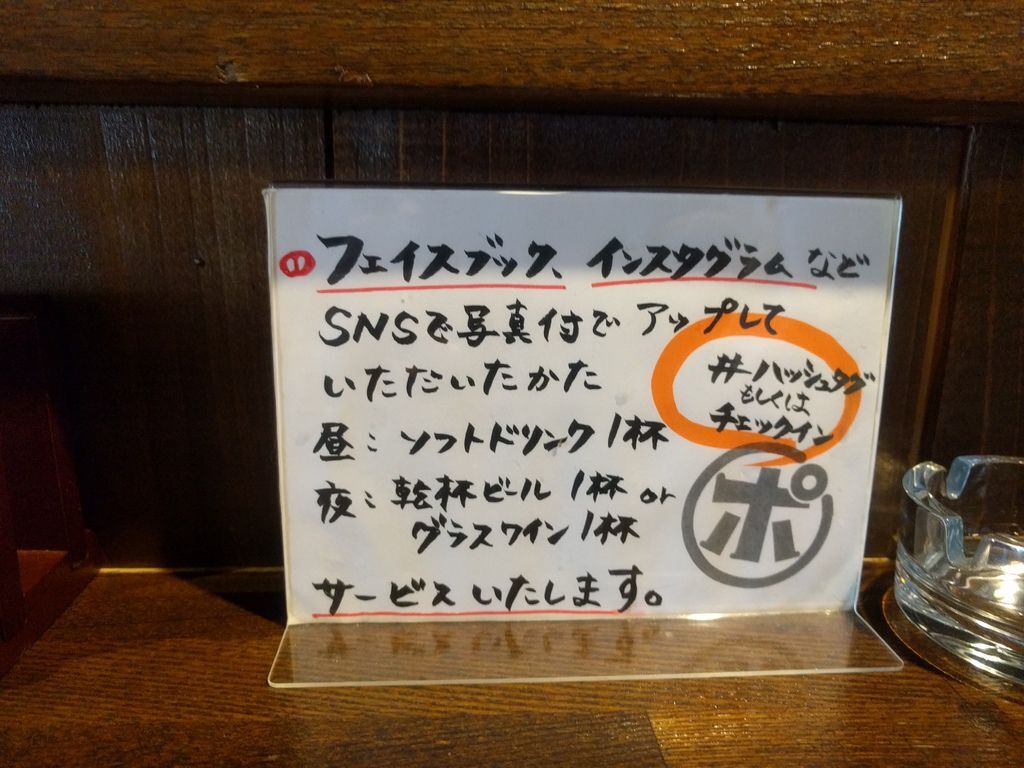 フェイスブック、インスタグラムなど
SNSで写真付でアップして
いただいたかた
#ハッシュタグ
もしくは
チェックイン
昼：ソフトドリンク1杯
夜：乾杯ビール1杯or
グラスワイン1杯
ポ
サービスいたします。